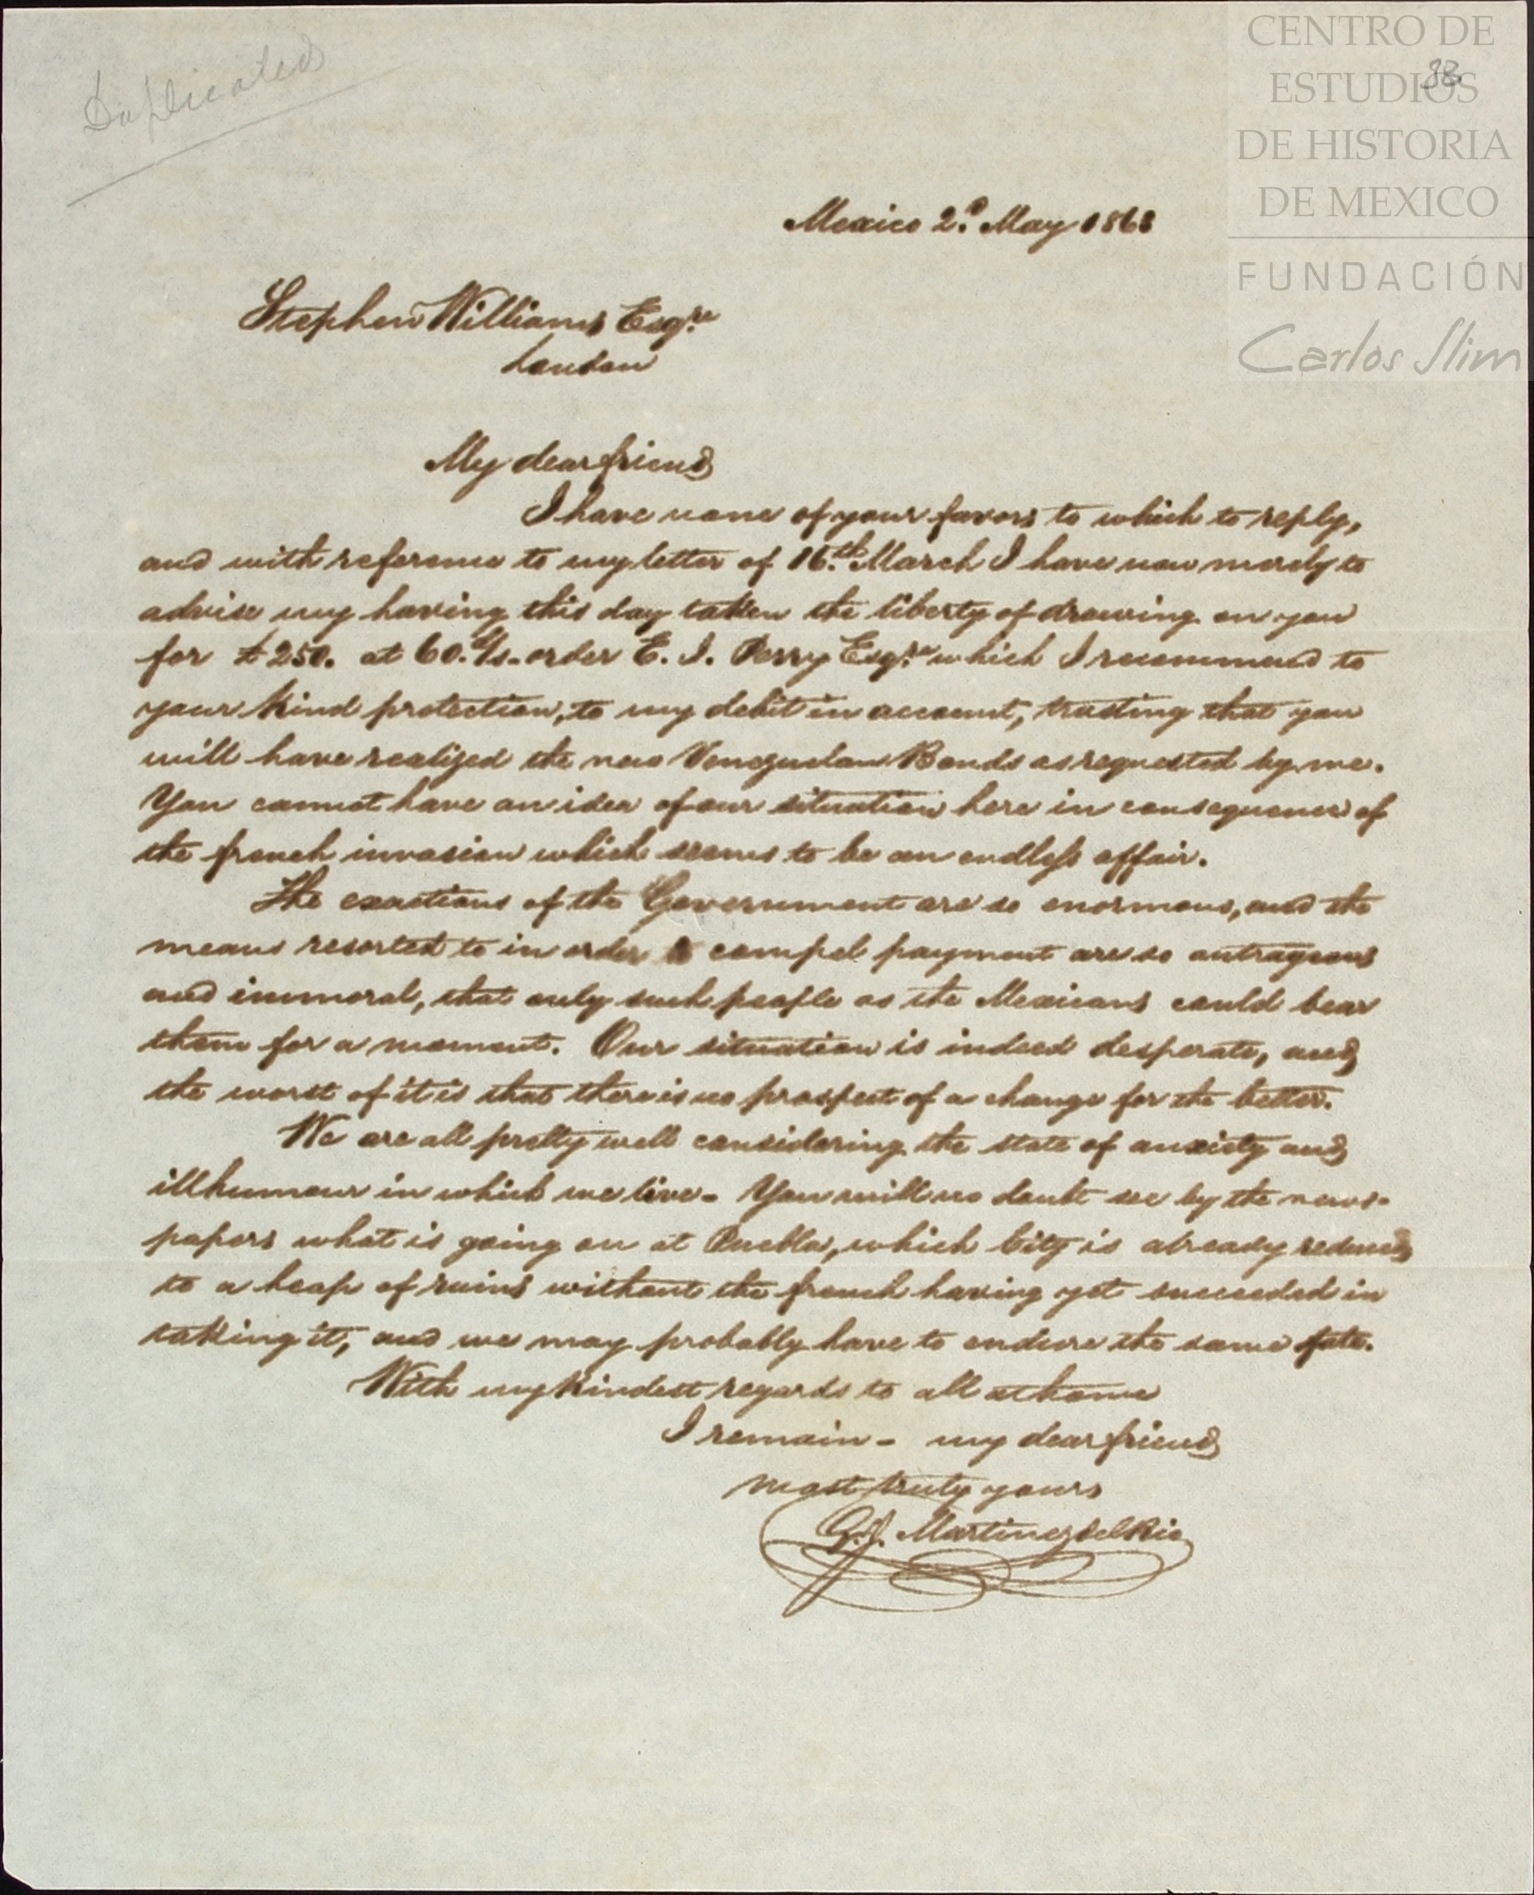 Duplicated
CENTRO DE
ESTUDIOS
DE HISTORIA
DE MEXICO
FUNDACIÓN
Carlos Slim
33
Mexico 2.d May 1863
Stephen Williams Esqre
London
My dear friend
I have none of your favors to which to reply,
and with reference to my letter of 16.th March I have now merely to
advise my having this day taken the liberty of drawing on you
for £250. at 60.d/s. order E. J. Perry Esqre which I recommend to
your kind protection, to my debit in account, trusting that you
will have realized the new Venezuelan Bonds as requested by me.
You cannot have an idea of our situation here in consequence of
the french invasion which seems to be an endless affair.
The exactions of the Government are so enormous, and the
means resorted to in order to compel payment are so outrageous
and immoral, that only such people as the Mexicans could bear
them for a moment. Our situation is indeed desperate, and
the worst of it is that there is no prospect of a change for the better.
We are all pretty well considering the state of anxiety and
illhumour in which we live - You will no doubt see by the news-
papers what is going on at Puebla, which City is already reduced
to a heap of ruins without the french having yet succeeded in
taking it, and we may probably have to endure the same fate.
With my kindest regards to all at home
I remain - my dear friend
most truly yours
G. J. Martinez del Rio